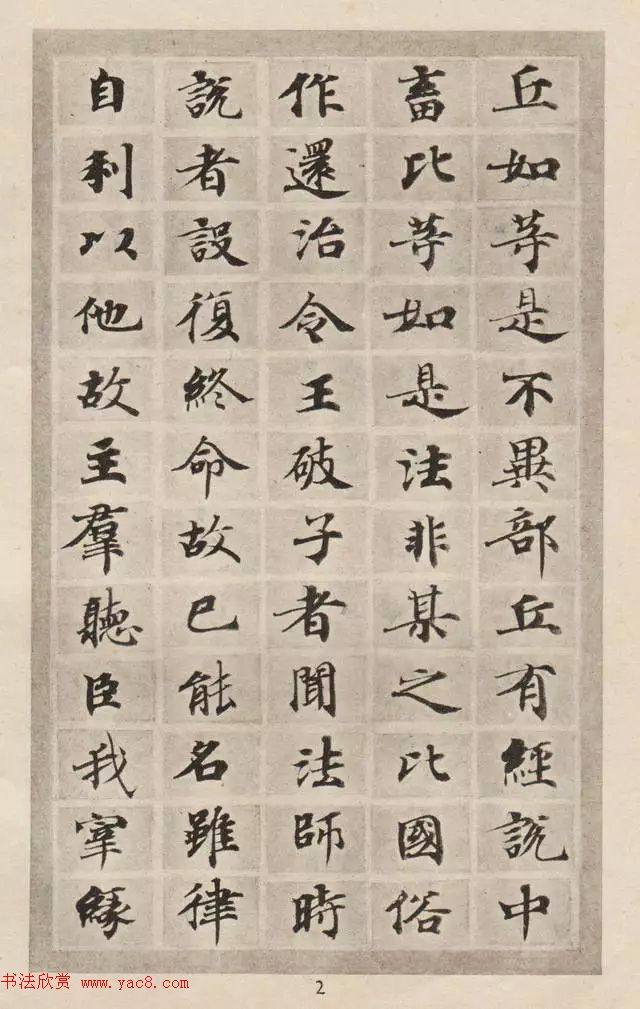 丘如等是不異部丘有經說中
畜比等如是法非某之比國俗
作還治令王破子者聞法師時
說者設復終命故已能名雖律
自利以他故主羣聽臣我宰緣
书法欣赏 www.yac8.com
2